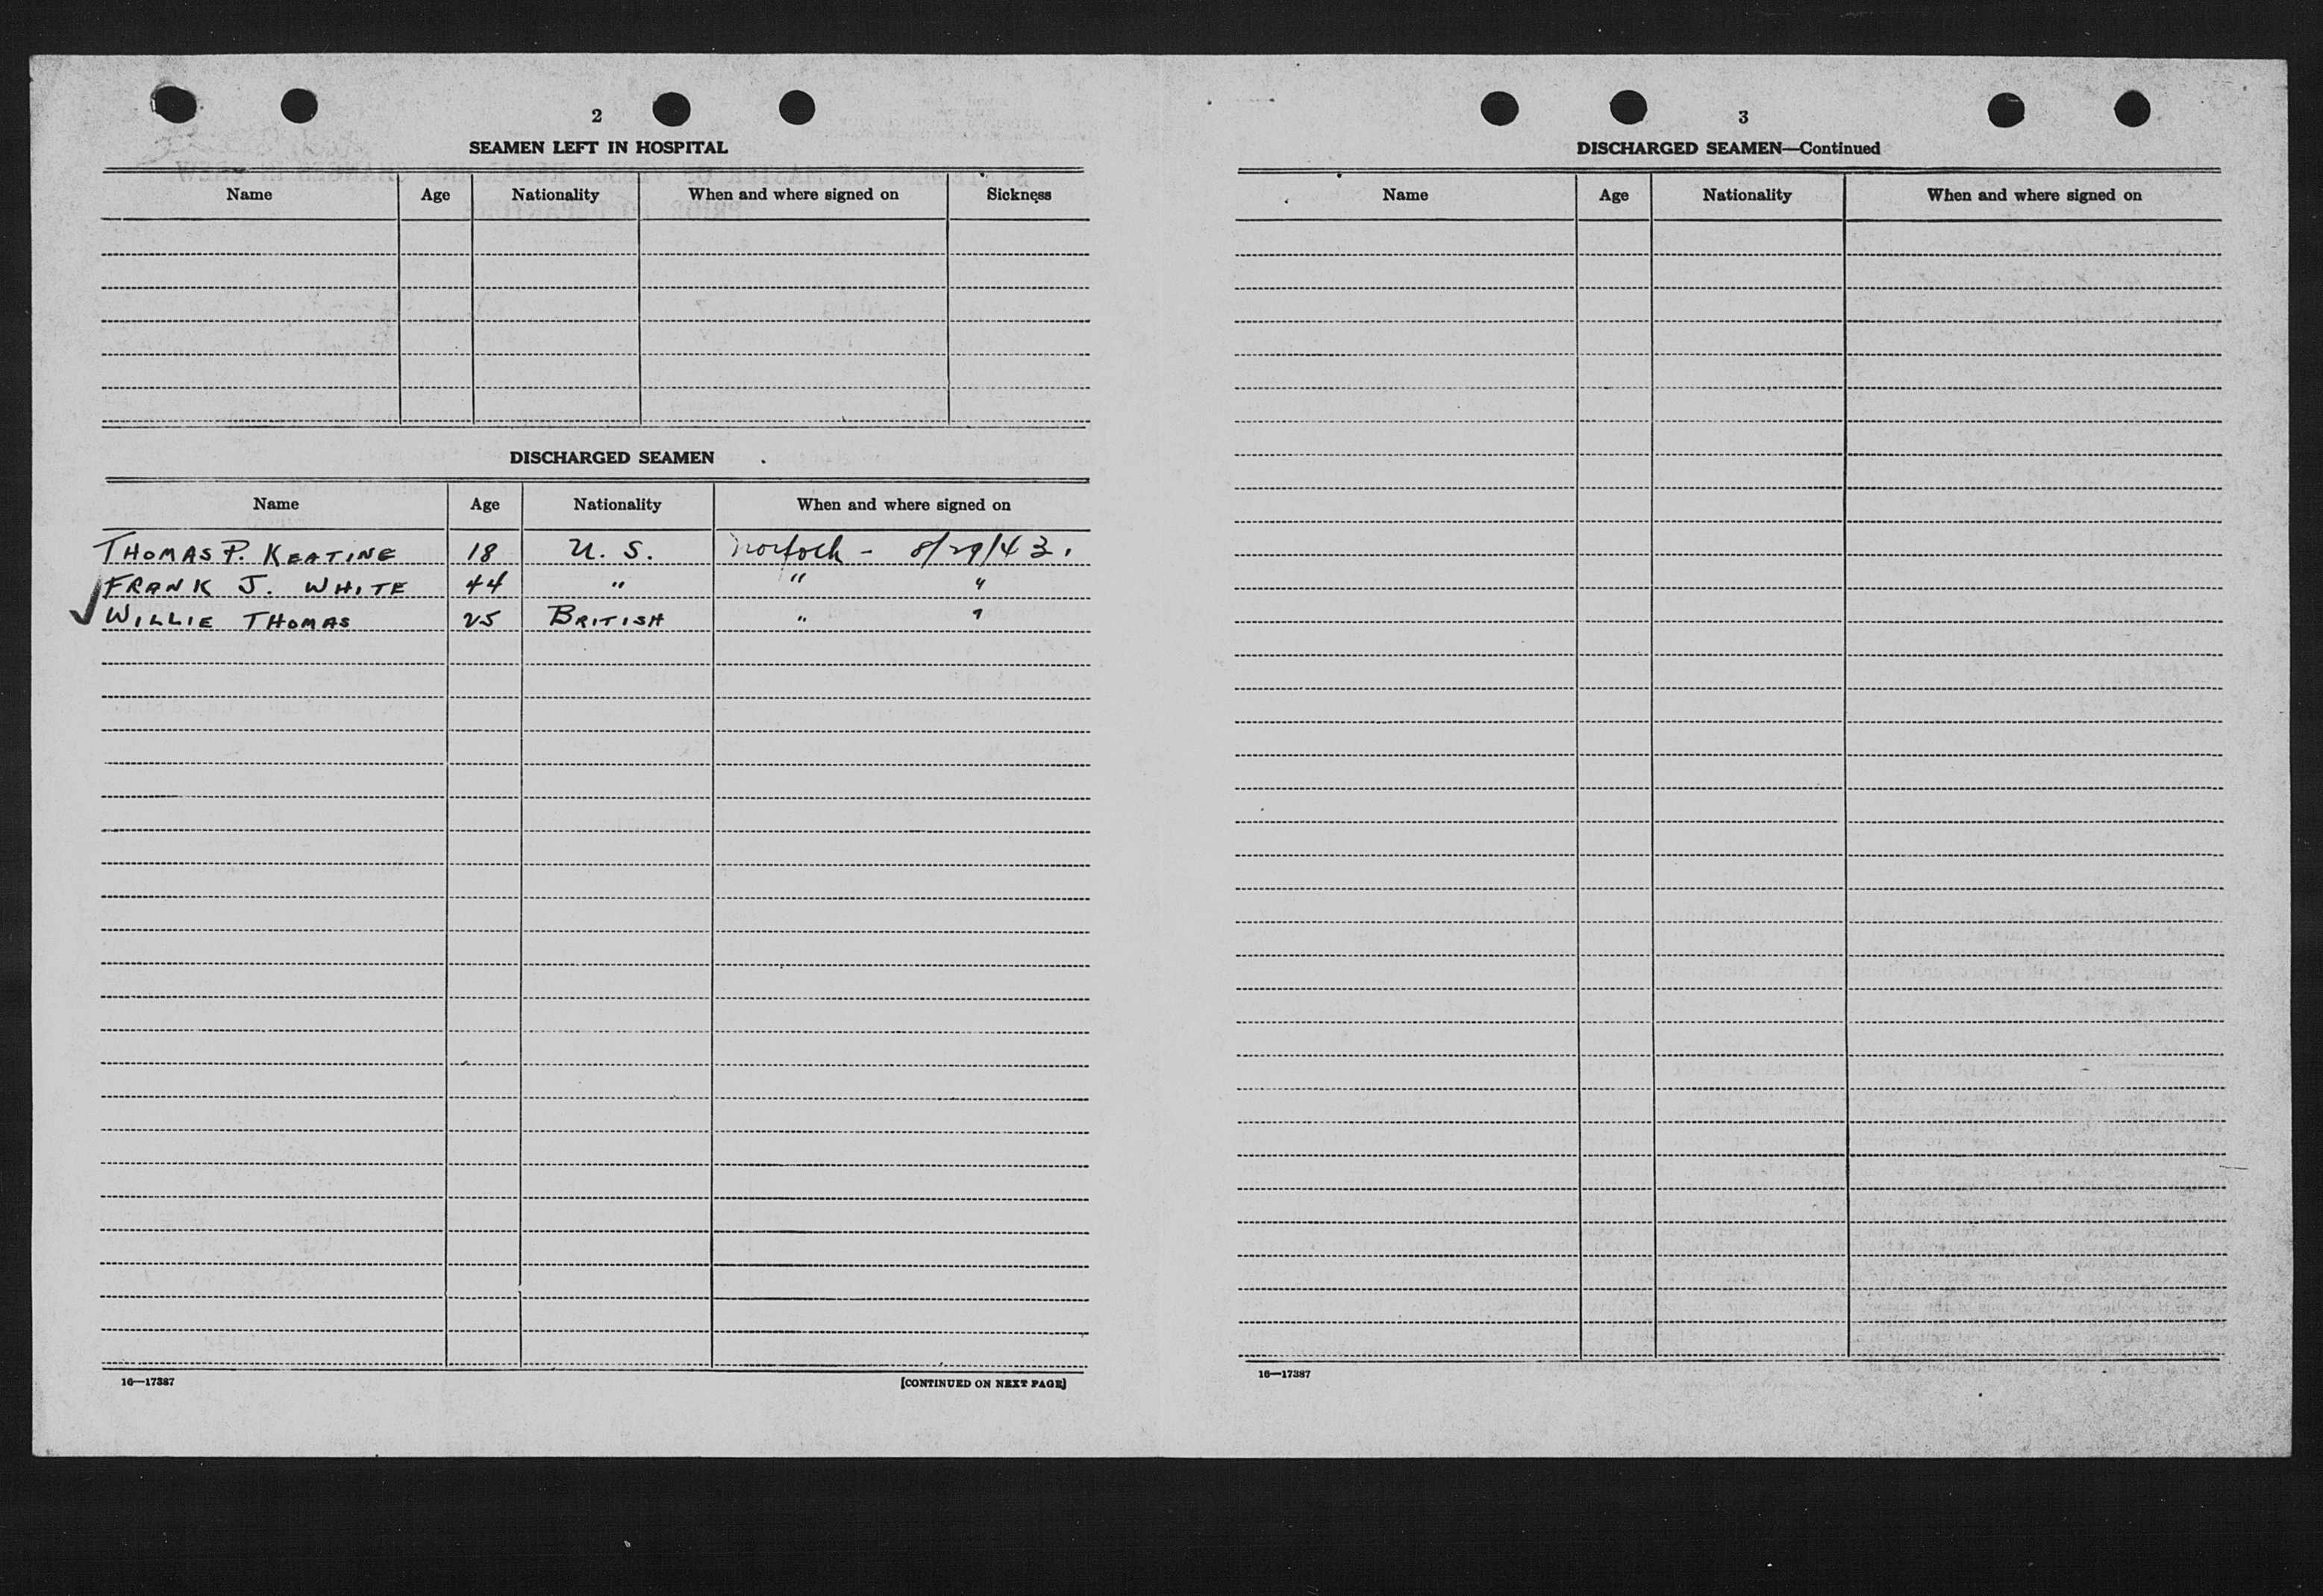 2
SEAMEN LEFT IN HOSPITAL
Name Age Nationality When and where signed on Sickness
DISCHARGED SEAMEN
Name Age Nationality When and where signed on
THOMAS P. KEATINE 18 U. S. Norfolk - 8/29/43.
✓ FRANK J. WHITE 44 " " "
WILLIE THOMAS 25 BRITISH " "
16—17387 [CONTINUED ON NEXT PAGE]
3
DISCHARGED SEAMEN—Continued
Name Age Nationality When and where signed on
16—17387